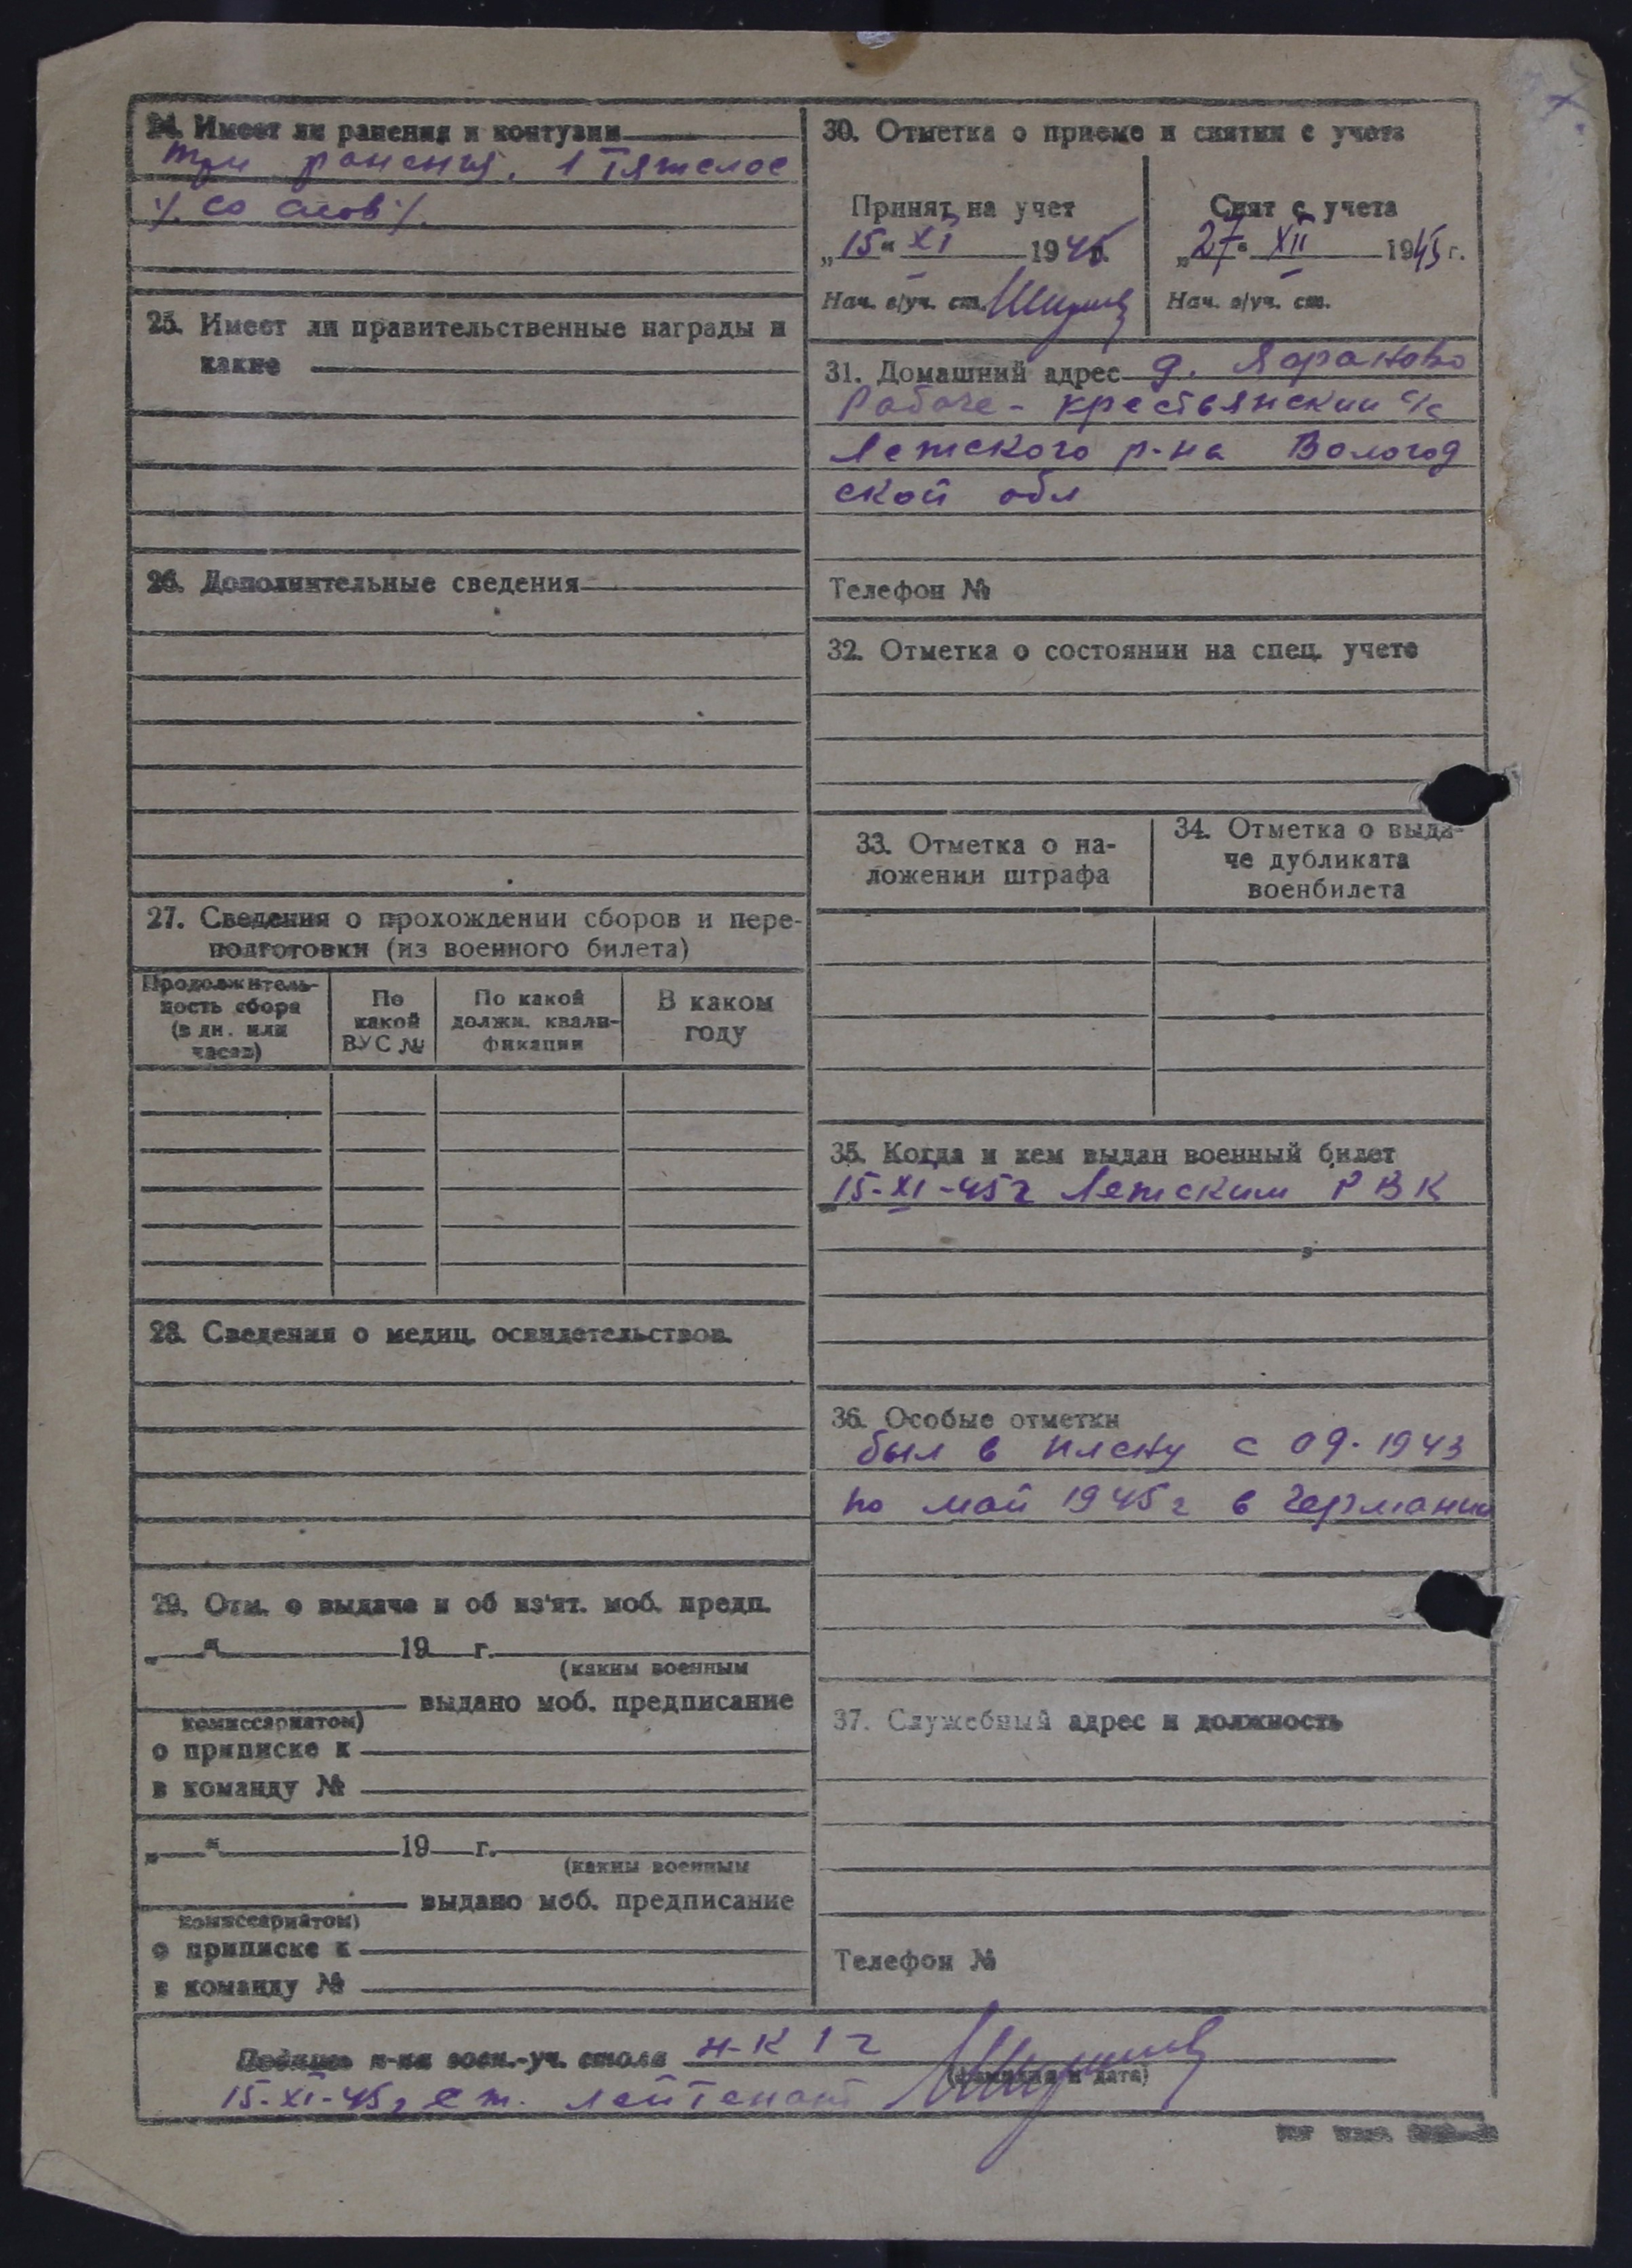 24. Имеет ли ранения и контузии
три ранения. 1 тяжелое
·/. со слов ·/.
25. Имеет ли правительственные награды и
какие
26. Дополнительные сведения
27. Сведения о прохождении сборов и пере-
подготовки (из военного билета)
Продолжитель-
ность сбора
(в дн. или
часах)
По
какой
ВУС №
По какой
должн. квали-
фикации
В каком
году
28. Сведения о медиц. освидетельствов.
29. Отм. о выдаче и об из'ят. моб. предп.
„ “ 19 г.
(каким военным
выдано моб. предписание
комиссариатом)
о приписке к
в команду №
„ “ 19 г.
(каким военным
выдано моб. предписание
комиссариатом)
о приписке к
в команду №
30. Отметка о приеме и снятии с учета
Принят на учет
„15“ XI 1945г.
Нач. в/уч. ст.
Снят с учета
„27“ XII 1945 г.
Нач. в/уч. ст.
31. Домашний адрес д.
Рабоче-крестьянский с/с
Лежского р-на Вологод
ской обл
Телефон №
32. Отметка о состоянии на спец. учете
33. Отметка о на-
ложении штрафа
34. Отметка о выда-
че дубликата
военбилета
35. Когда и кем выдан военный билет
15-XI-45г Лежским РВК
36. Особые отметки
был в плену с 09.1943
по май 1945г в Германии
37. Служебный адрес и должность
Телефон №
Подпись н-ка воен.-уч. стола н-к 1 ч
(фамилия и дата)
15-XI-45г ст. лейтенант